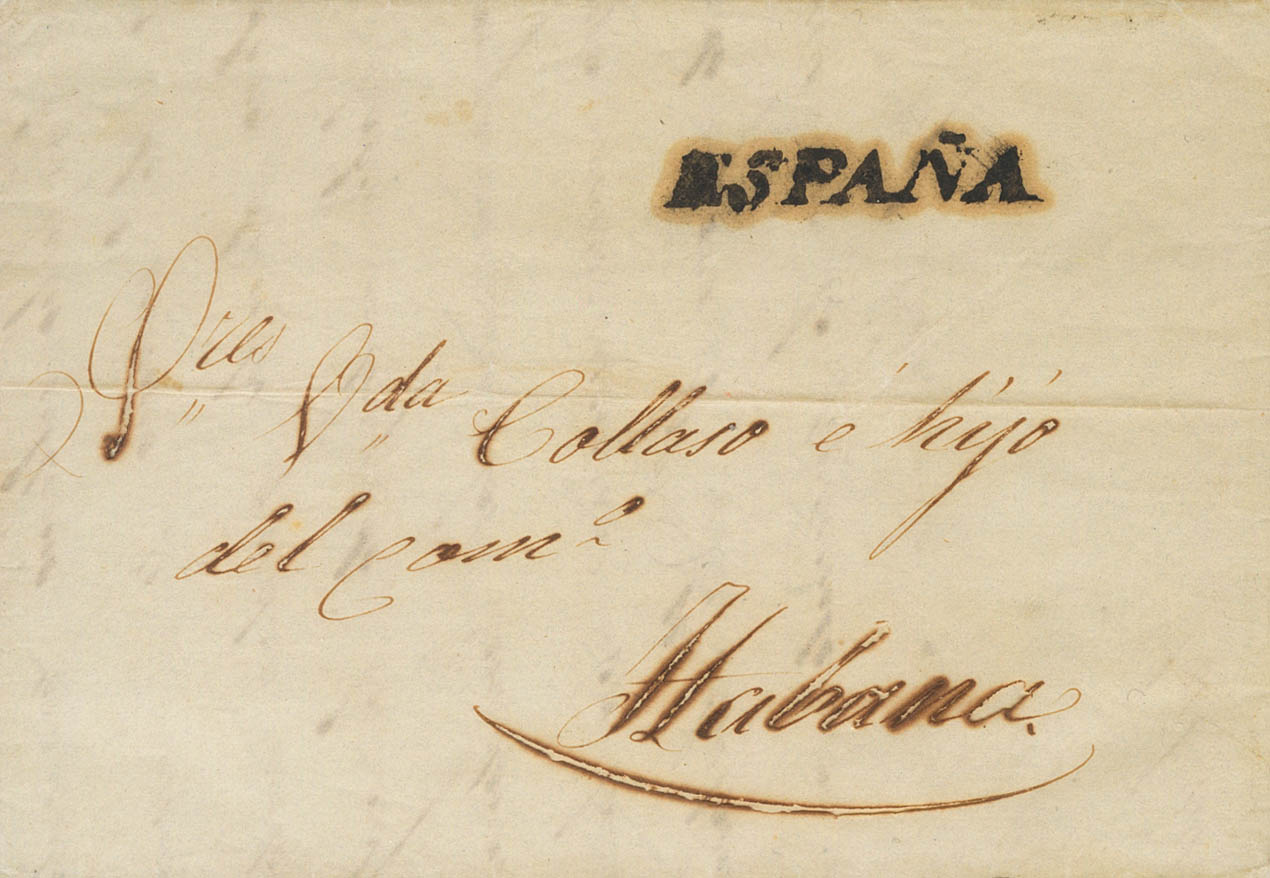 ESPAÑA
Sres Vda Collaso é hijo
del como
Habana.